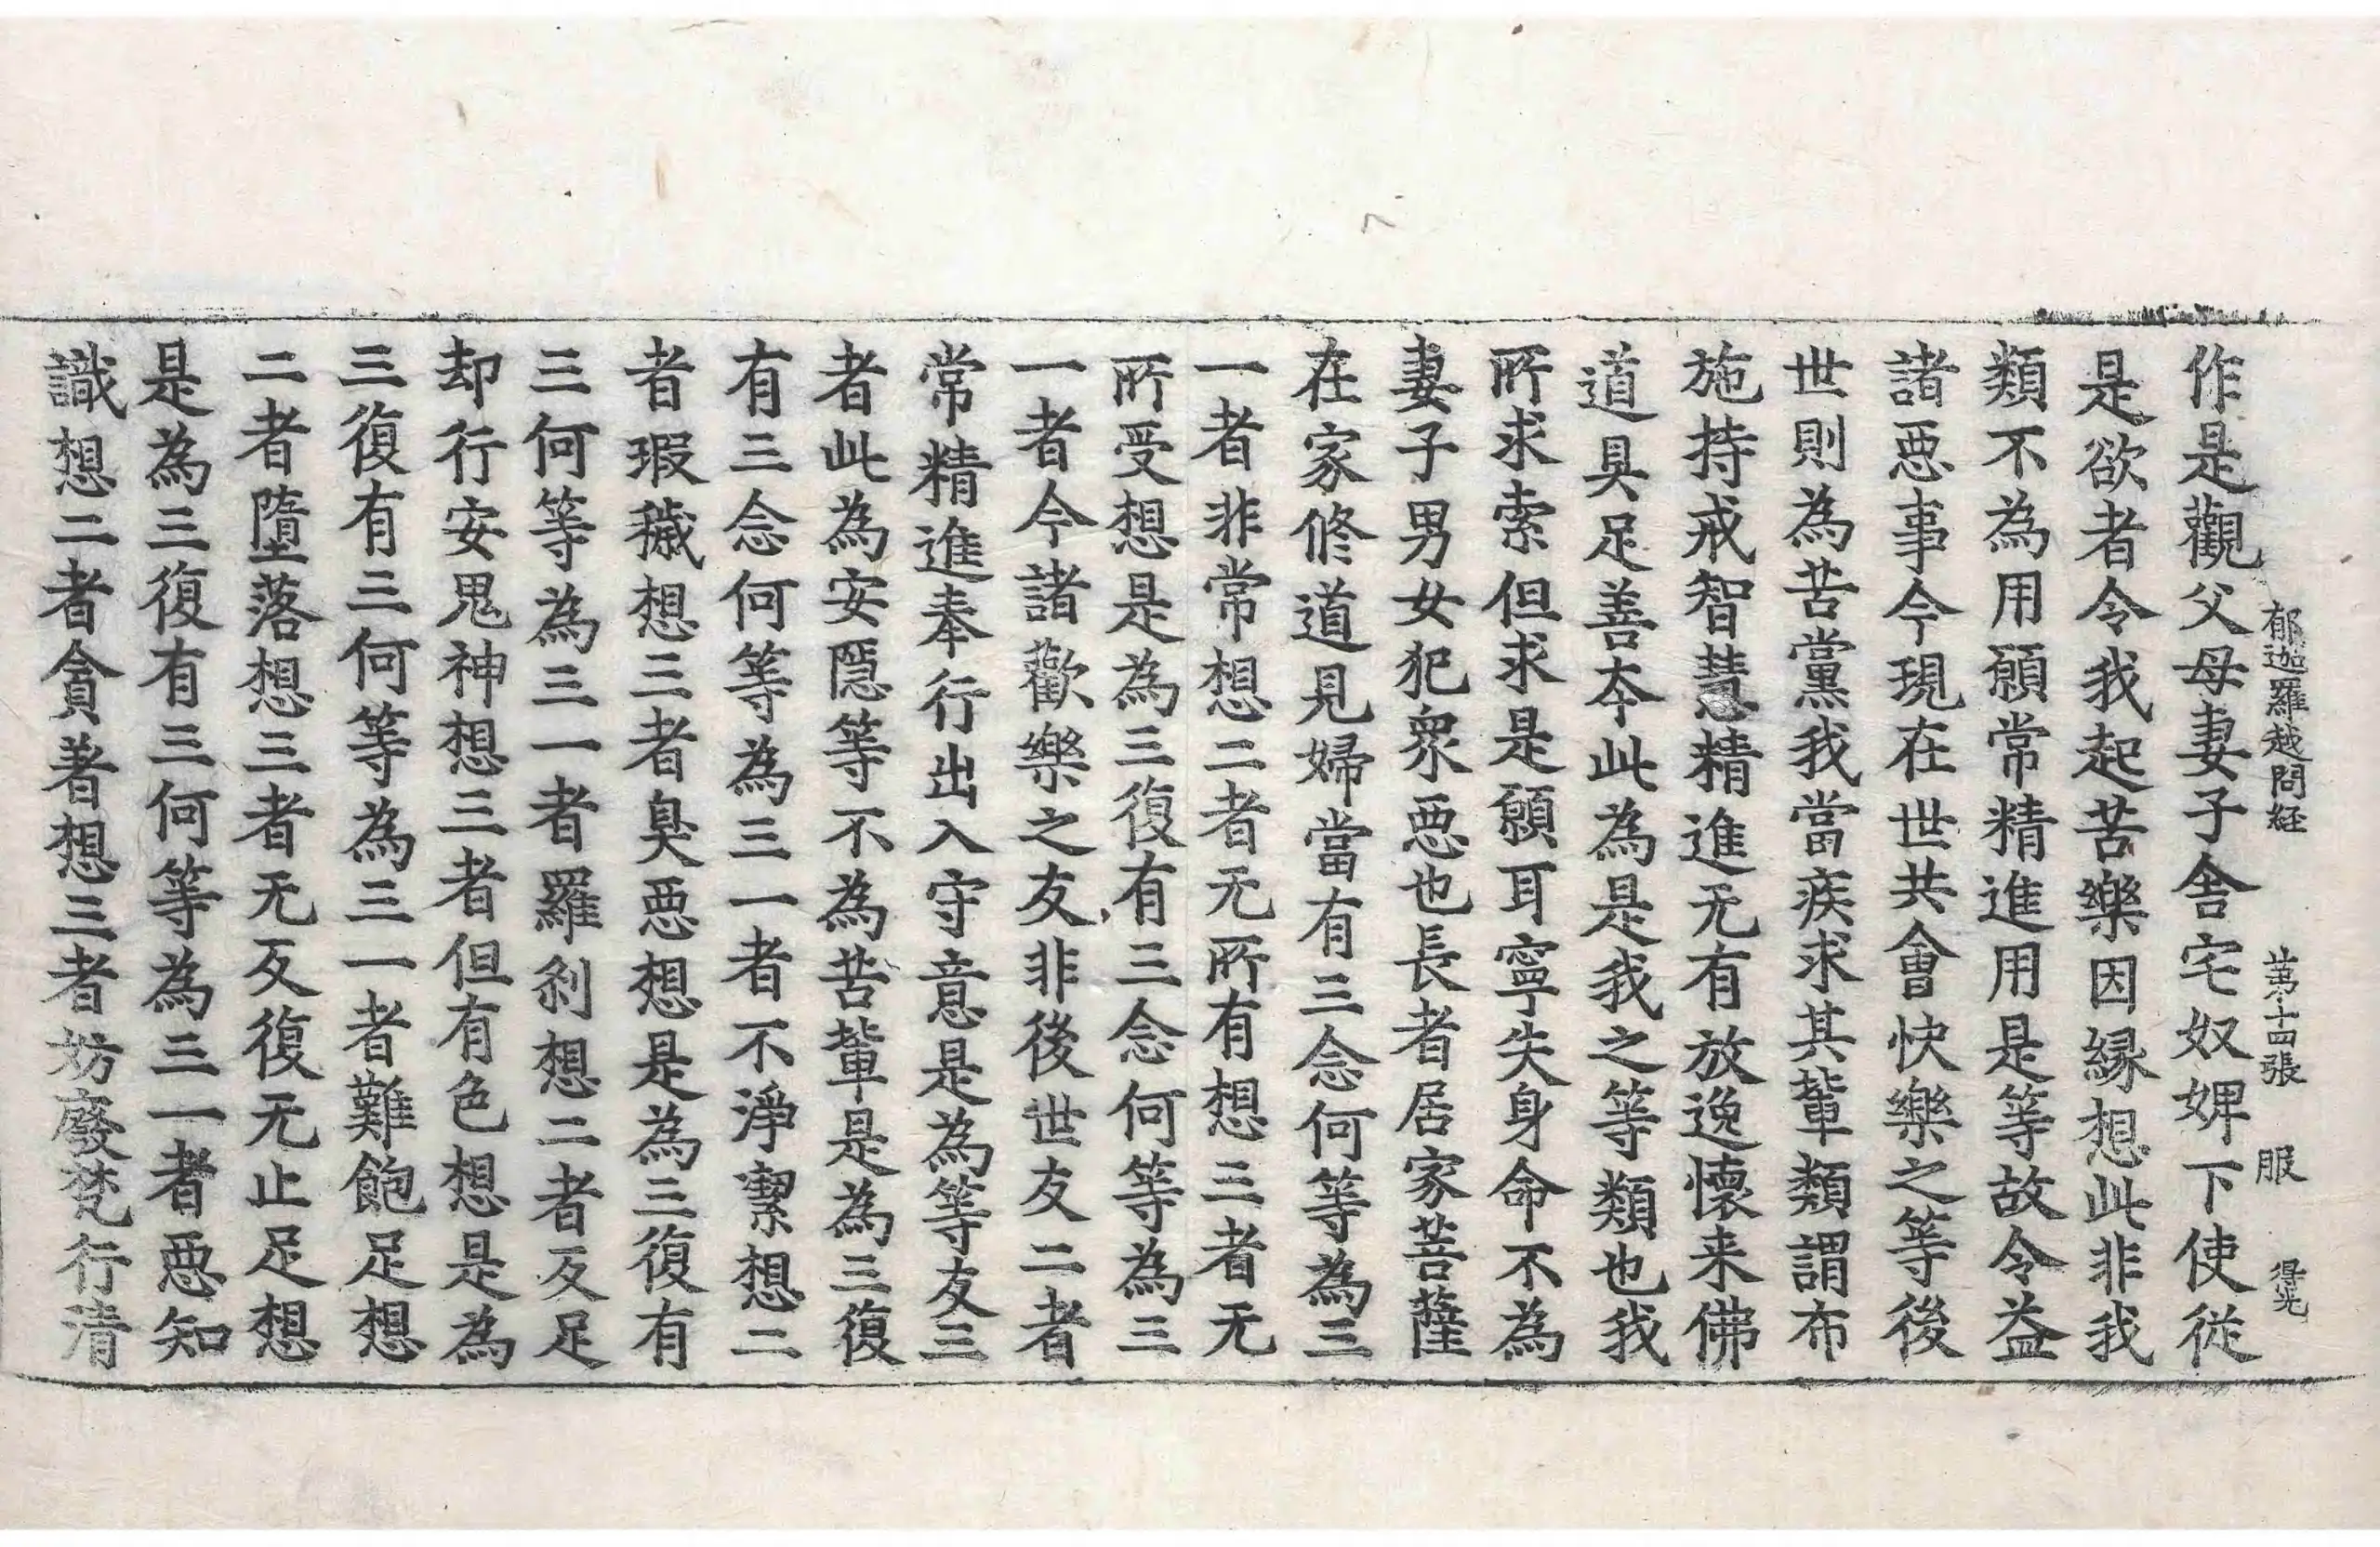 郁迦羅越問経 第十四張 服 得光
作是觀父母妻子舍宅奴婢下使從
是欲者令我起苦樂因縁想此非我
類不為用願常精進用是等故令益
諸惡事今現在世共會快樂之等後
世則為苦黨我當疾求其輩類謂布
施持戒智慧精進无有放逸懷来佛
道具足善夲此為是我之等類也我
所求索但求是願耳寧失身命不為
妻子男女犯衆惡也長者居家菩薩
在家修道見婦當有三念何等為三
一者非常想二者无所有想三者无
所受想是為三復有三念何等為三
一者今諸歡樂之友非後世友二者
常精進奉行出入守意是為等友三
者此為安隱等不為苦輩是為三復
有三念何等為三一者不淨潔想二
者瑕穢想三者臭惡想是為三復有
三何等為三一者羅刹想二者反足
却行安鬼神想三者但有色想是為
三復有三何等為三一者難飽足想
二者墮落想三者无反復无止足想
是為三復有三何等為三一者惡知
識想二者貪著想三者妨廢梵行清